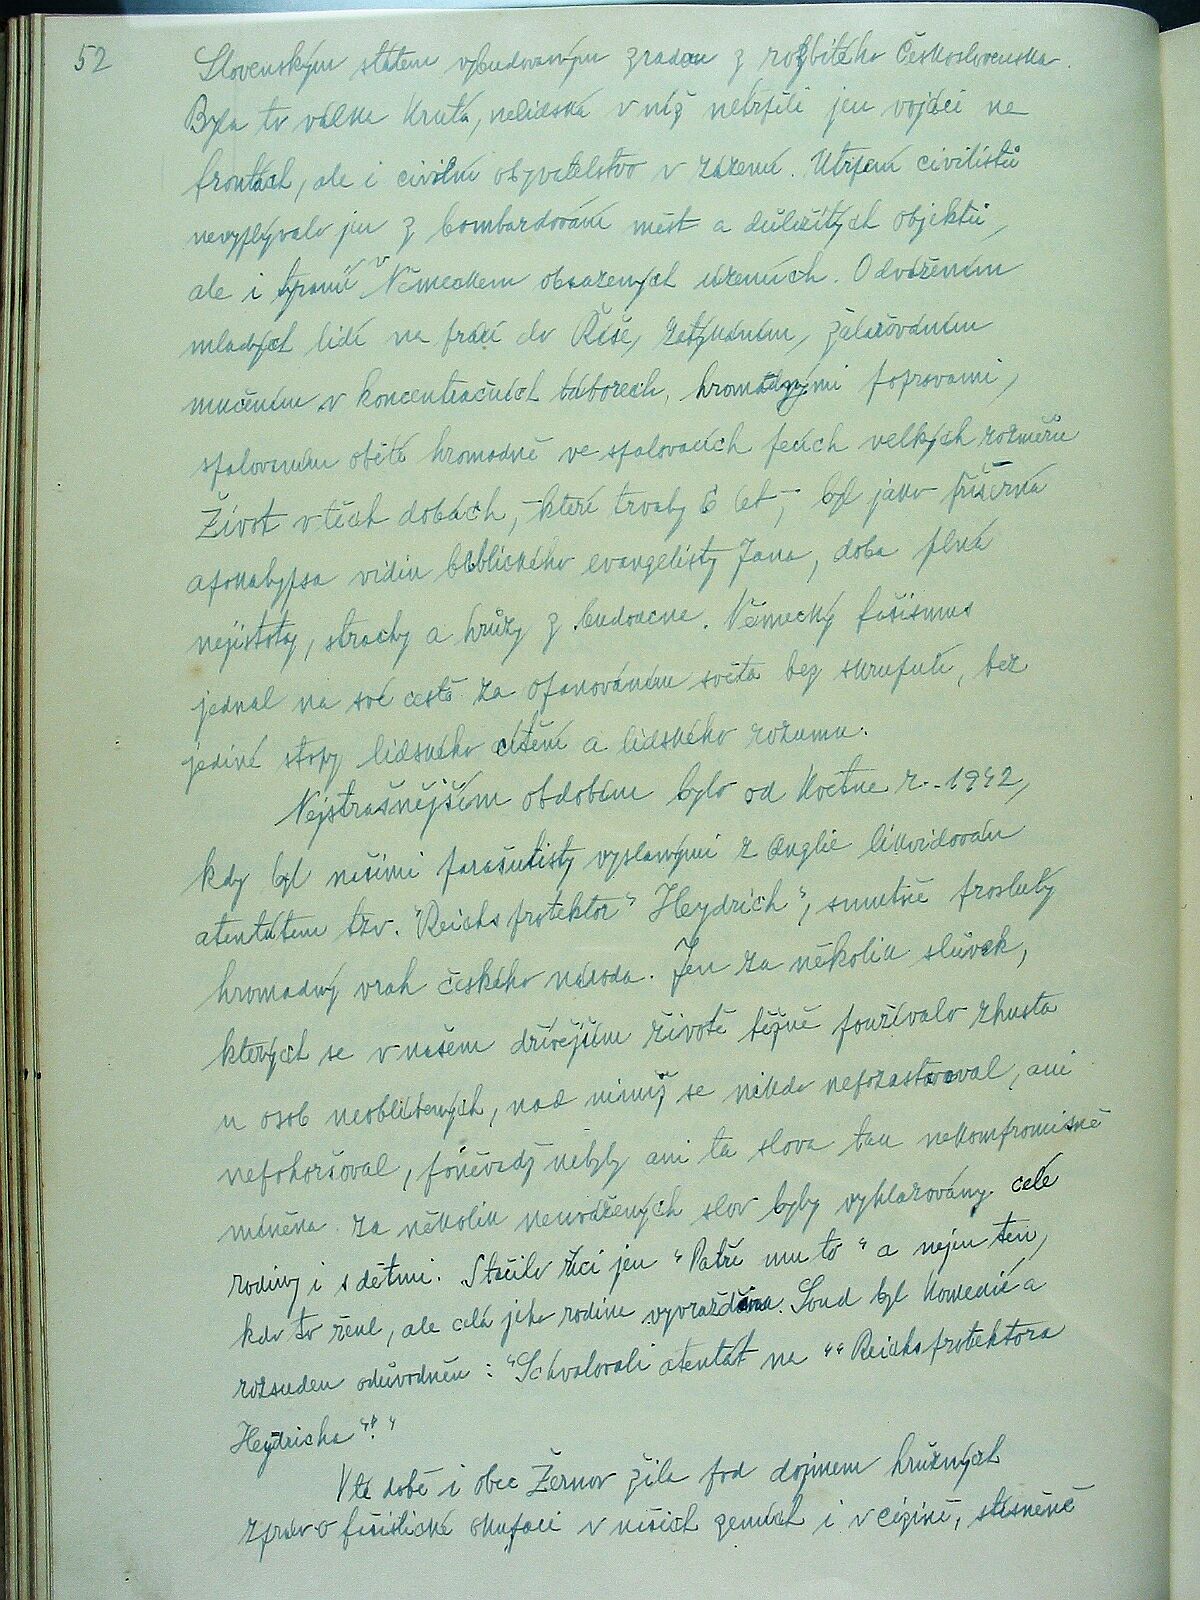 52
Slovenským státem vybudovaným zradou z rozbitého Československa.
Byla to válka krutá, nelidská v níž netrpěli jen vojáci na
frontách, ale i civilní obyvatelstvo v zázemí. Utrpení civilistů
nevyplývalo jen z bombardování měst a důležitých objektů,
ale i tyranií v Německem obsazených územích. Odvážením
mladých lidí na práci do Říše, zatýkáním, žalařováním
mučením v koncentračních táborech, hromadnými popravami,
spalováním obětí hromadně ve spalovacích pecích velkých rozměrů
Život v těch dobách, – které trvaly 6 let –, byl jako příšerná
apokalypsa vidin biblického evangelisty Jana, doba plná
nejistoty, strachy a hrůzy z budoucna. Německý fašismus
jednal na své cestě za opanováním světa bez skrupulí, bez
jediné stopy lidského cítění a lidského rozumu.
Nejstrašnějším obdobím bylo od května r. 1942,
kdy byl našimi parašutisty vyslanými z Anglie likvidován
atentátem tzv. "Reichsprotektor" Heydrich", smutně proslulý
hromadný vrah českého národa. Jen za několik slůvek,
kterých se v našem dřívějším životě běžně používalo zhusta
u osob neoblíbených, nad nimiž se nikdo nepozastavoval, ani
nepohoršoval, poněvadž nebyly ani ta slova tak nekompromisně
míněna. Za několik neuvážených slov byly vyhlazovány celé
rodiny i s dětmi. Stačilo říci jen "Patří mu to" a nejen ten,
kdo to řekl, ale celá jeho rodina vyvražděna. Soud byl komedie a
rozsudek odůvodněn: "Schvalovali atentát na "" Reichsprotektora
Heydricha"".
V té době i obec Žernov žila pod dojmem hrůzných
zpráv o fašistické okupaci v našich zemích i v cizině, stísněně